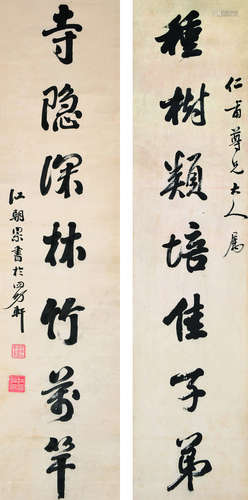 仁甫尊兄大人属
種樹類培佳子弟
寺隐深林竹萬竿
江朝宗書於四勿軒